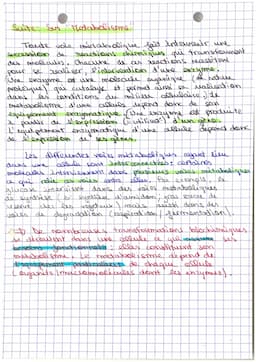 Suite son Métabolisme
Toute voie métabolique fait intervenir une
succession de réactions chimiques qui transforment
des molécules. Chacune de ces réactions nécessite
pour se réaliser, l'intervention d'une enzyme.
Une enzyme est une molécule organique (de nature
protéique) qui catalyse et permet ainsi sa réalisation
dans les conditions du milieu cellulaire. Le
métabolisme d'une cellule dépend donc de son
équipement enzymatique. Une enzyme est produite
à partir de l'expression (utilisation) d'un gène.
L'équipement enzymatique d'une cellule dépend donc
de l'expression de ses gènes.
Les différentes voies métaboliques ayant lieu
dans une cellule sont interconnectées : certaines
molécules interviennent dans plusieurs voies métaboliques
ce qui relie ces voies entre elles. Par exemple, le
glucose intervient dans des voies métaboliques
de synthèse (synthèse d'amidon, par
des végétaux) mais aussi dans des
voies de dégradation (respiration / fermentation).
De nombreuses transformations biochimiques
se déroulent dans une cellule ce qui ses
: elles constituent son
métabolisme. Le métabolisme dépend de
l'équipement de chaque cellule
(organites, macromolécules dont les enzymes).